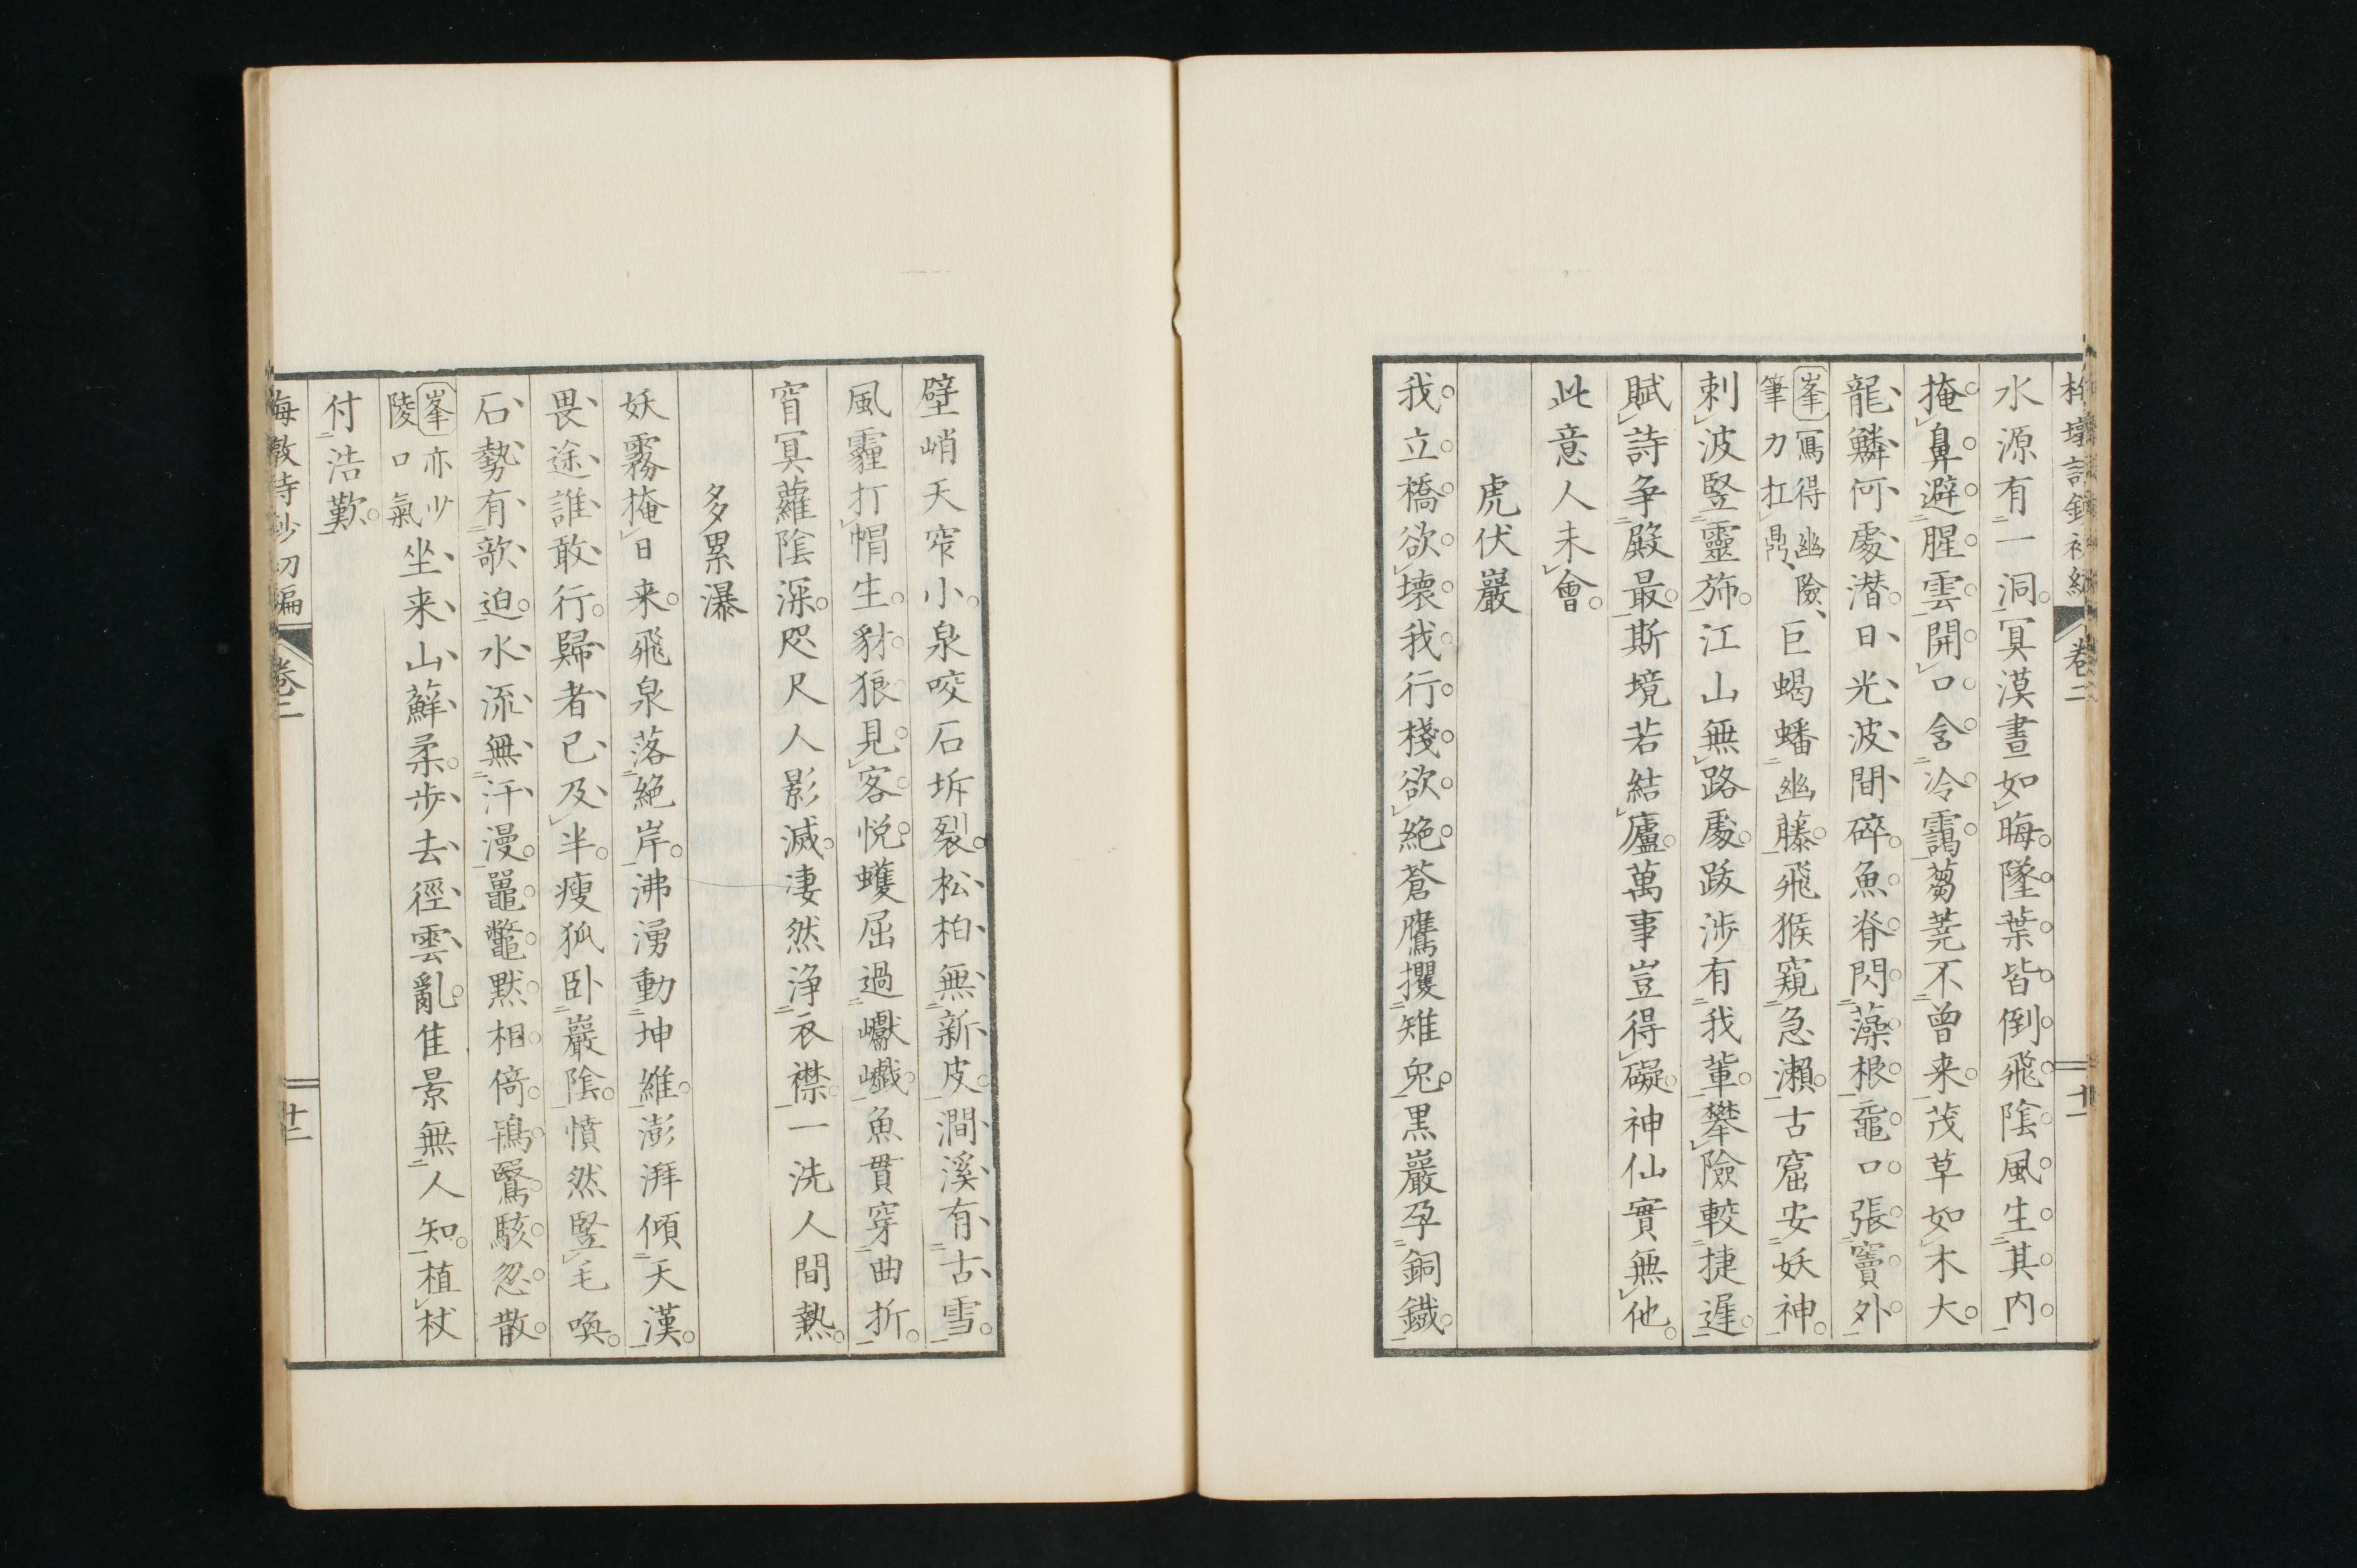 卷二
十一
水源有一洞冥漠晝如晦墜葉皆倒飛陰風生其内
掩鼻避腥雲開口含冷靄蒭蕘不曾来茂草如木大
龍鱗何處潜日光波間碎魚脊閃藻根黿口張竇外
峯寫得幽險
筆力扛鼎巨蝎蟠幽藤飛猴窺急瀬古窟安妖神
刺波竪靈斾江山無路處跋渉有我輩攀險較捷遅
賦詩争殿最斯境若結廬萬事豈得礙神仙實無他
此意人未會
虎伏巖
我立橋欲壊我行棧欲絶蒼鷹攫雉兔黒巖孕銅鐵
壁峭天窄小泉咬石坼裂松柏無新皮澗溪有古雪
風霾打帽生豺狼見客悦蠖屈過巘巇魚貫穿曲折
窅冥蘿陰深咫尺人影滅凄然浄衣襟一洗人間熱
多累瀑
妖霧掩日来飛泉落絶岸沸湧動坤維澎湃傾天漢
畏途誰敢行歸者已及半瘦狐卧巖陰憤然竪毛喚
石勢有歌迫水流無汗漫鼉鼈黙相倚鴇鷖駭忽散
峯亦少
陵口氣坐来山蘚柔歩去徑雲亂隹景無人知植杖
付浩歎
卷二
十二